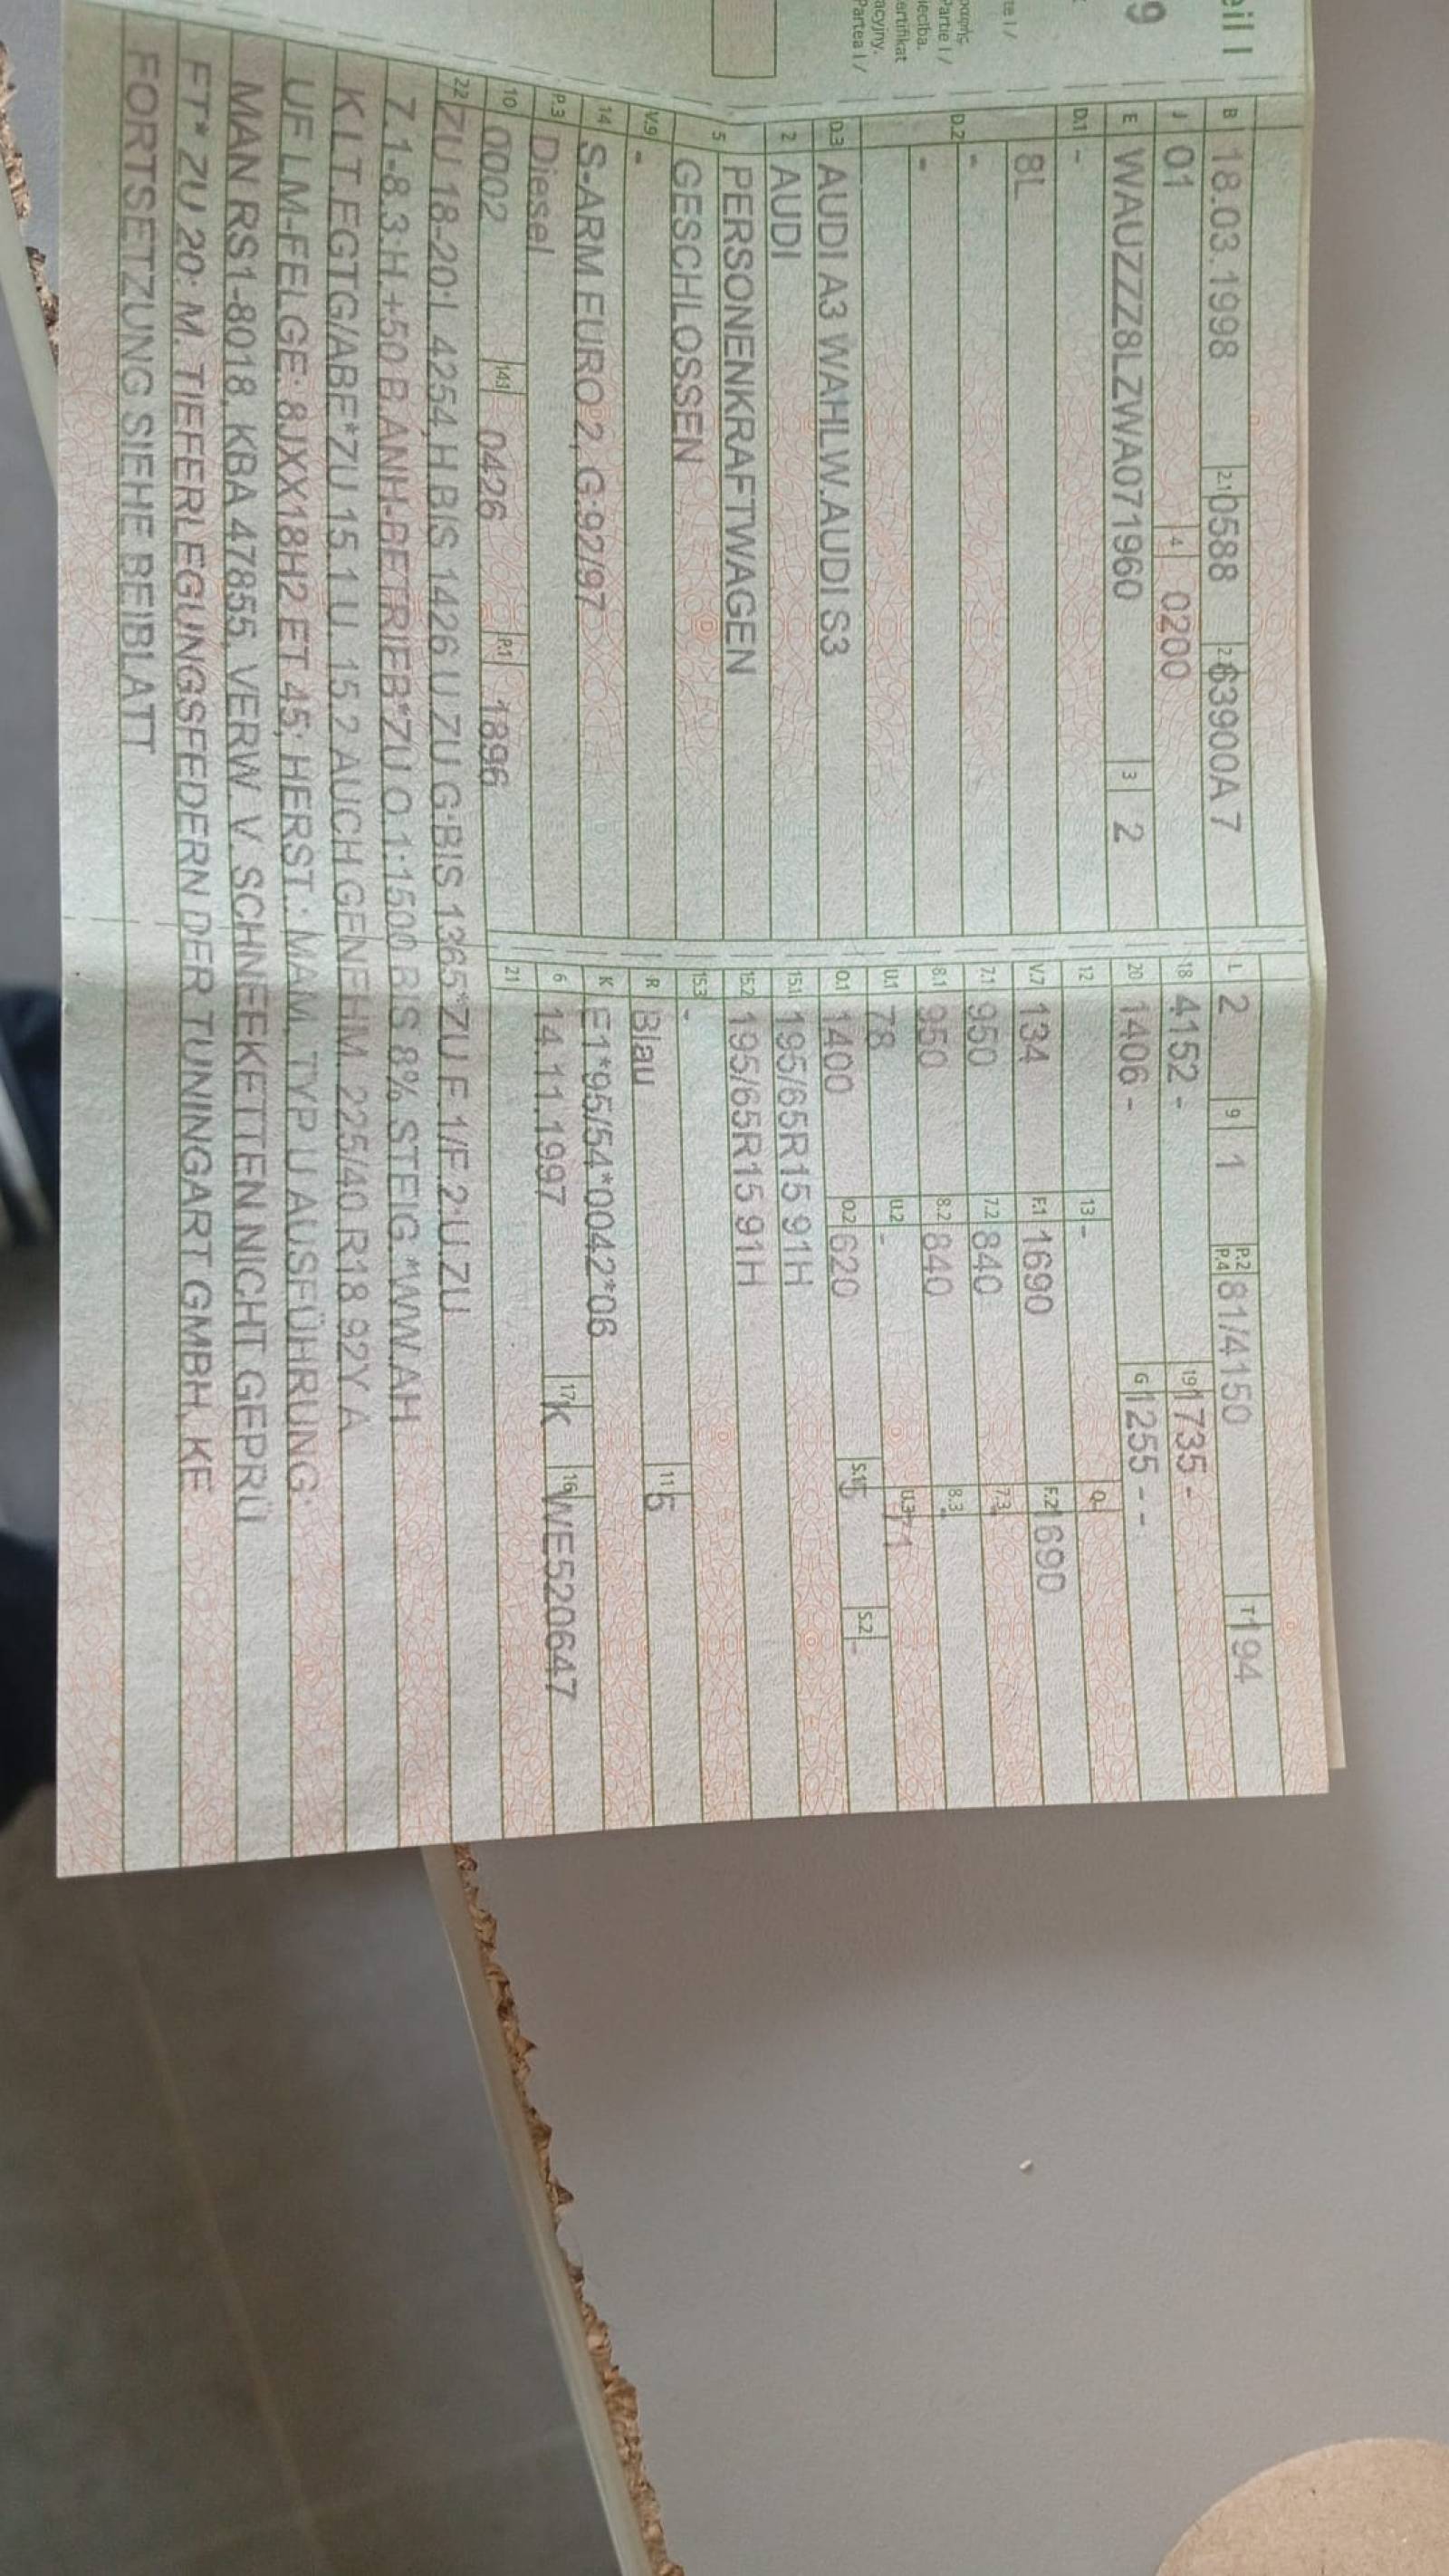 eil I
9
te I /
Partie I /
iecība.
ertifikat
acyjny.
Partea I /
B 18.03.1998 2.1 0588 2.2 63900A 7
J 01 4 0200
E WAUZZZ8LZWA071960 3 2
D.1 -
8L
D.2 -
-
D.3 AUDI A3 WAHLW.AUDI S3
2 AUDI
5 PERSONENKRAFTWAGEN
GESCHLOSSEN
V.9 -
14 S-ARM EURO 2, G:92/97
P.3 Diesel
10 0002 14.1 0426 P.1 1896
L 2 9 1 P.2 P.4 81/4150 T 194
18 4152 - 19 1735 -
20 1406 - G 1255 - -
12 13 - Q -
V.7 134 F.1 1690 F.2 1690
7.1 950 7.2 840 7.3 -
8.1 950 8.2 840 8.3 -
U.1 78 U.2 - U.3 71
O.1 1400 O.2 620 S.1 5 S.2 -
15.1 195/65R15 91H
15.2 195/65R15 91H
15.3 -
R Blau 11 5
K E1*95/54*0042*06
6 14.11.1997 17 K 16 WE520647
21
22 ZU 18-20:L 4254,H BIS 1426 U ZU G:BIS 1365*ZU F.1/F.2:U.ZU
7.1-8.3:H.+50 B.ANH-BETRIEB*ZU O.1:1500 BIS 8% STEIG.*WW.AH
K LT.EGTG/ABE*ZU 15.1 U. 15.2 AUCH GENEHM. 225/40 R18 92Y A
UF LM-FELGE: 8JXX18H2 ET 45; HERST.: MAM, TYP U AUSFÜHRUNG:
MAN RS1-8018, KBA 47855, VERW. V. SCHNEEKETTEN NICHT GEPRÜ
FT* ZU 20: M. TIEFERLEGUNGSFEDERN DER TUNINGART GMBH, KE
FORTSETZUNG SIEHE BEIBLATT